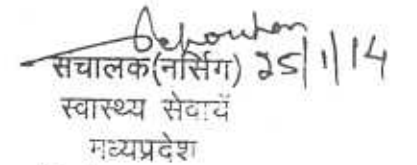 संचालक(नर्सिंग) 25/1/14
स्वास्थ्य सेवायें
मध्यप्रदेश